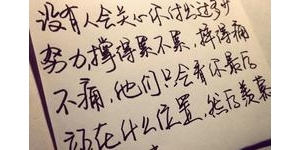 没有人会关心你付出过多少
努力,撑得累不累,摔得痛
不痛,他们只会看你最后
站在什么位置,然后羡慕